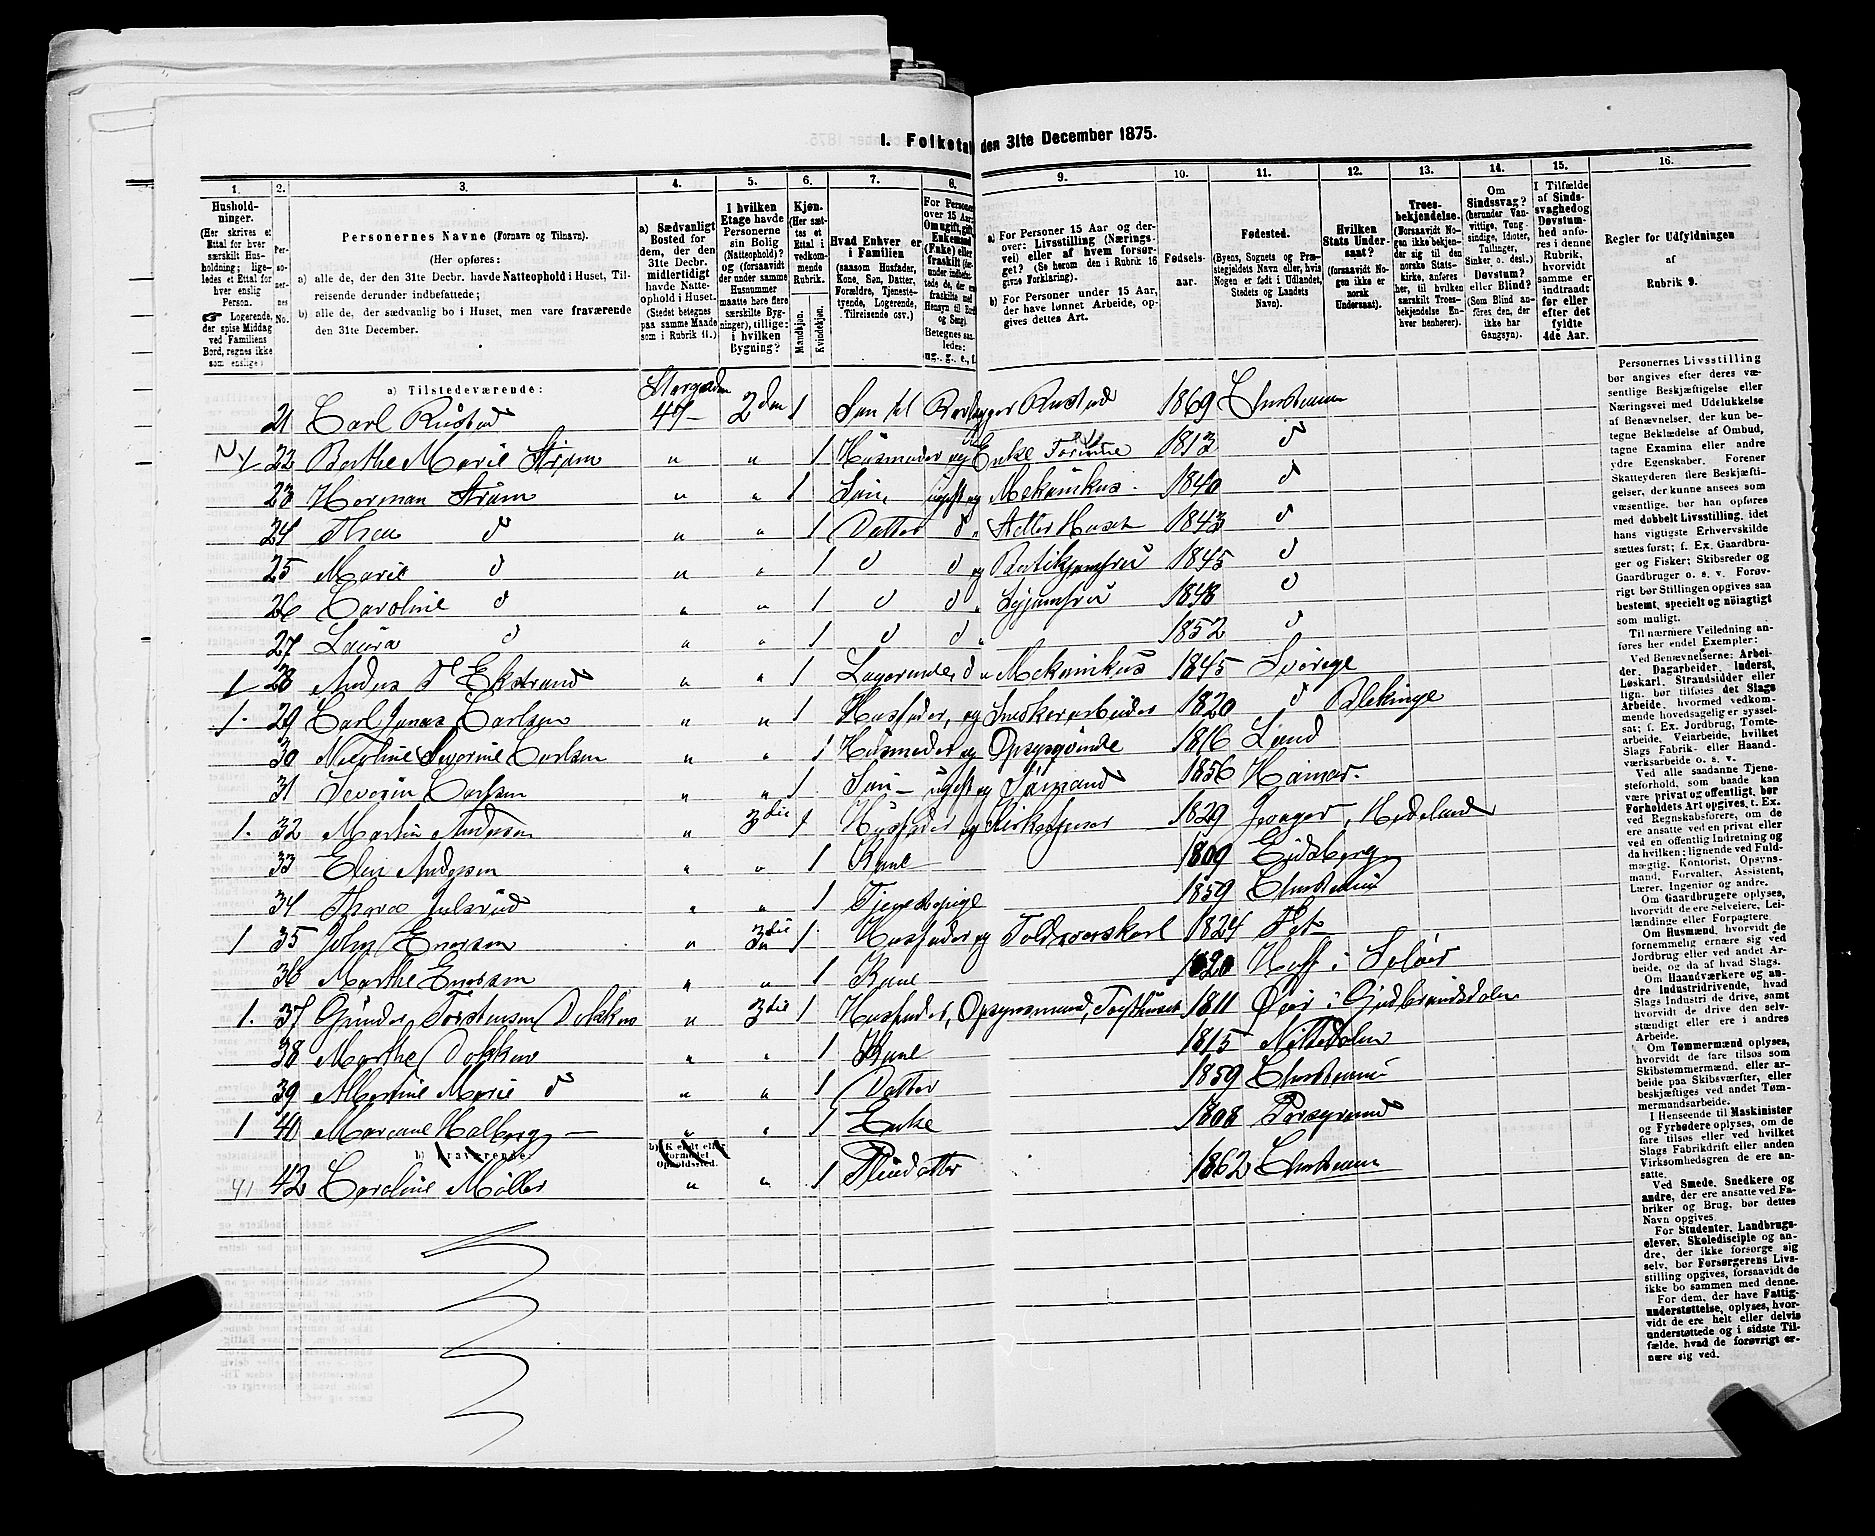 1. Folketal den 31te December 1875.
1. 2. 3. 4. 5. 6. 7. 8. 9. 10. 11. 12. 13. 14. 15. 16.
Husholdninger.
(Her skrives et Ettal for hver særskilt Husholdning; ligeledes et Ettal for hver enslig Person.
Logerende, der spise Middag ved Familiens Bord, regnes ikke som enslige).
Personernes No.
Personernes Navne (Fornavn og Tilnavn).
(Her opføres:
a) alle de, der den 31te Decbr. havde Natteophold i Huset, Tilreisende derunder indbefattede;
b) alle de, der sædvanlig bo i Huset, men vare fraværende den 31te December.
a) Sædvanligt Bosted for dem, der den 31te Decbr. midlertidigt havde Natteophold i Huset. (Stedet betegnes paa samme Maade som i Rubrik 11.)
I hvilken Etage havde Personerne sin Bolig (Natteophold)? og (forsaavidt der under samme Husnummer maatte høre flere særskilte Bygninger), tillige: i hvilken Bygning?
Kjøn. (Her sættes et Ettal i vedkommende Rubrik.
Mandkjøn. Kvindekjøn.
Hvad Enhver er i Familien
(saasom Husfader, Kone, Søn, Datter, Forældre, Tjenestetyende, Logerende, Tilreisende osv.)
a) For Personer 15 Aar og derover: Livsstilling (Næringsvei) eller af hvem forsørget? (Se herom den i Rubrik 16 givne Forklaring).
b) For Personer under 15 Aar, der have lønnet Arbeide, opgives dettes Art.
Fødselsaar.
Fødested.
(Byens, Sognets og Præstegjeldets Navn eller, hvis Nogen er født i Udlandet, Stedets og Landets Navn).
Hvilken Stats Undersaat?
(forsaavidt Nogen ikke er norsk Undersaat).
Troesbekjendelse.
(Forsaavidt Nogen ikke bekjender sig til den norske Statskirke, anføres her, til hvilken særskilt Troesbekjendelse Enhver henhører).
Om Sindssvag? (herunder Vanvittige, Tungsindige, Idioter, Tullinger, Sinker o. desl.)
Døvstum? eller Blind? (Som Blind anføres den, der ikke har Gangsyn).
I Tilfælde af Sindssvaghed og Døvstumhed anføres i denne Rubrik, hvorvidt samme er indtraadt før eller efter det fyldte 4de Aar.
Regler for Udfyldningen af Rubrik 9.
a) Tilstedeværende:
Storgaden
21 Carl Rustad 41- 2den 1 Søn til Rustad 1869 Christiania
1 22 Berthe Marie Strøm " " 1 Husmoder og Enke 1813 d
23 Herman Strøm " " 1 Søn, ugift og Mekanikus 1840 d
24 Thea d " " 1 Datter d 1843 d
25 Marie d " " 1 d d og Butikjomfru 1845 d
26 Caroline d " " 1 d d " Syjomfru 1848 d
27 Laura d " " 1 d d " 1852 d
1 28 Anders Ekstrand " " 1 Logerende, d " Mekanikus 1845 Sverige
1 29 Carl Jonas Carlsen " " 1 Husfader, og Snedkerarbeider 1820 d Blekinge
30 Nicoline Severine Carlsen " " 1 Husmoder og 1816 Lund
31 Severin Carlsen " " 1 Søn - ugift og Sømand 1856 Hamar
1 32 Martin Andersen " 3die 1 Husfader og Kirketjener 1829 Hedeland
33 Elen Andersen " " 1 Kone 1809 Eidsberg
34 Thora Julsrud " " 1 Tjenestepige 1859 Christiania
1 35 John Enersen " 3die 1 Husfader og 1824 Fet
36 Marthe Enersen " " 1 Kone 1820 Hoff i Soløer
1 37 Gunder Torstensen Dokken " 3die 1 Husfader, Opsynsmand, 1811 Øier i Gudbrandsdalen
38 Marthe Dokken " " 1 Kone 1815 Nittedalen
39 Albertine Marie d " " 1 Datter 1859 Christiania
1 40 Mariane Holberg - " " 1 Enke 1808 Porsgrund
b) Fraværende: b) Kjendt eller formodet Opholdssted.
41 42 Caroline Møller " " 1 Pleiedatter 1862 Christiania
Personernes Livsstilling bør angives efter deres væsentlige Beskjæftigelse eller Næringsvei med Udelukkelse af Benævnelser, der kun betegne Beklædelse af Ombud, tagne Examina eller andre ydre Egenskaber. Forener Skatteyderen flere Beskjæftigelser, der kunne ansees som væsentlige, bør han opføres med dobbelt Livsstilling, idet hans vigtigste Erhvervskilde sættes først; f. Ex. Gaardbruger og Fisker; Skibsreder og Gaardbruger o. s. v. Forøvrigt bør Stillingen opgives saa bestemt, specielt og nøiagtigt som muligt.
Til nærmere Veiledning anføres her endel Exempler:
Ved Benævnelserne: Arbeider, Dagarbeider, Inderst, Løskarl, Strandsidder eller lign. bør tilføies det Slags Arbeide, hvormed vedkommende hovedsagelig er sysselsat; f. Ex. Jordbrug, Tomtearbeide, Veiarbeide, hvilket Slags Fabrik- eller Haandværksarbeide o. s. v.
Ved alle saadanne Tjenesteforhold, som baade kan være privat og offentligt, bør Forholdets Art opgives, t. Ex. ved Regnskabsførere, om de ere ansatte ved en privat eller ved en offentlig Indretning og da hvilken; lignende ved Fuldmægtig, Kontorist, Opsynsmand, Forvalter, Assistent, Lærer, Ingeniør og andre.
Om Gaardbrugere oplyses, hvorvidt de ere Selveiere, Leilændinge eller Forpagtere.
Om Husmænd, hvorvidt de fornemmelig ernære sig ved Jordbrug eller ved andet Arbeide, og da af hvad Slags.
Om Haandværkere og andre Industridrivende, hvad Slags Industri de drive, samt hvorvidt de drive den selvstændigt eller ere i andres Arbeide.
Om Tømmermænd oplyses, hvorvidt de fare tilsøs som Skibstømmermænd, eller arbeide paa Skibsværfter, eller beskjæftiges ved andet Tømmermandsarbeide.
I Henseende til Maskinister og Fyrbødere oplyses, om de fare tilsøs eller ved hvilket Slags Fabrikdrift eller anden Virksomhedsgren de ere ansatte.
Ved Smede, Snedkere og andre, der ere ansatte ved Fabriker og Brug, bør dettes Navn opgives.
For Studenter, Landbrugselever, Skoledisciple og andre, der ikke forsørge sig selv, bør Forsørgerens Livsstilling opgives, forsaavidt de ikke bo sammen med denne.
For dem, der have Fattigunderstøttelse, oplyses, hvorvidt de ere helt eller delvis understøttede og i sidste Tilfælde, hvad de forøvrigt ernære sig ved.